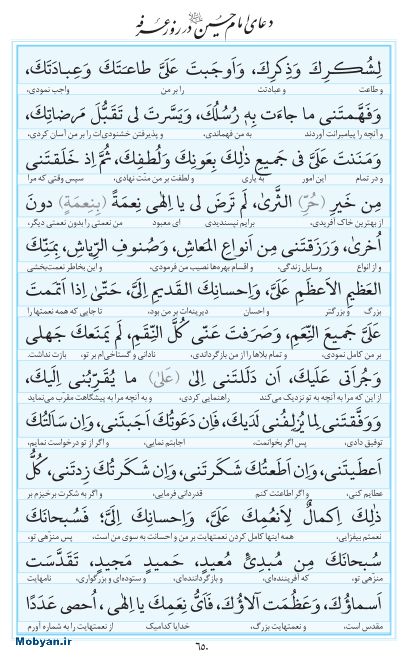 دعای امام حسین در روز عرفه
لِشُكرِكَ وَذِكرِكَ، وَاَوجَبتَ عَلَىَّ طاعَتَكَ وَعِبادَتَكَ،
و طاعت و عبادتت را بر من واجب نمودی،
وَفَهَّمتَنى ما جاءَت بِهِ رُسُلُكَ، وَيَسَّرتَ لى تَقَبُّلَ مَرضاتِكَ،
و آنچه را پیامبرانت آوردند به من فهماندی، و پذیرفتن خشنودی‌ات را بر من آسان کردی،
وَمَنَنتَ عَلَىَّ فى جَميعِ ذٰلِكَ بِعَونِكَ وَلُطفِكَ، ثُمَّ اِذ خَلَقتَنى
و در تمام این امور به یاری و لطفت بر من منّت نهادی، سپس وقتی که مرا
مِن خَيرِ (حُرِّ) الثَّرىٰ، لَم تَرضَ لى يا اِلٰهى نِعمَةً (بِنِعمَةٍ) دونَ
از بهترین خاک آفریدی، برایم نپسندیدی ای معبود من نعمتی را بدون نعمتی دیگر،
اُخرىٰ، وَرَزَقتَنى مِن اَنواعِ المَعاشِ، وَصُنوفِ الرِّياشِ، بِمَنِّكَ
و از انواع وسایل زندگی، و اقسام بهره‌ها نصیب من فرمودی، و این بخاطر نعمت‌بخشی
العَظيمِ الاَعظَمِ عَلَىَّ، وَاِحسانِكَ القَديمِ اِلَىَّ، حَتّىٰ اِذا اَتمَمتَ
بزرگ و بزرگتر و احسان دیرینه‌ات بر من بود، تا جایی که همه نعمتها را
عَلَىَّ جَميعَ النِّعَمِ، وَصَرَفتَ عَنّى كُلَّ النِّقَمِ، لَم يَمنَعكَ جَهلى
بر من کامل نمودی، و تمام بلاها را از من بازگرداندی، نادانی و گستاخی‌ام بر تو، بازت نداشت.
وَجُراَتى عَلَيكَ، اَن دَلَلتَنى اِلىٰ (عَلىٰ) ما يُقَرِّبُنى اِلَيكَ،
از این که مرا به آنچه به تو نزدیک می‌کند راهنمایی کردی، و به آنچه مرا به پیشگاهت مقرب می‌نماید
وَوَفَّقتَنى لِما يُزلِفُنى لَدَيكَ، فَاِن دَعَوتُكَ اَجَبتَنى، وَاِن سَاَلتُكَ
توفیق دادی، پس اگر بخوانمت، اجابتم نمایی، و اگر از تو درخواست نمایم،
اَعطَيتَنى، وَاِن اَطَعتُكَ شَكَرتَنى، وَاِن شَكَرتُكَ زِدتَنى، كُلُّ
عطایم کنی، و اگر اطاعتت کنم قدردانی فرمایی، و اگر به شکرت برخیزم بر
ذٰلِكَ اِكمالٌ لِاَنعُمِكَ عَلَىَّ، وَاِحسانِكَ اِلَىَّ، فَسُبحانَكَ
نعمتم بیفزایی، همه اینها کامل کردن نعمتهایت بر من و احسانت به سوی من است، پس منزهی تو،
سُبحانَكَ مِن مُبدِئٍ مُعيدٍ، حَميدٍ مَجيدٍ، تَقَدَّسَت
منزهی تو، که آفریننده‌ای و بازگرداننده‌ای، و ستوده‌ای و بزرگواری، نامهایت
اَسماؤُكَ، وَعَظُمَت آلاؤُكَ، فَاَىُّ نِعَمِكَ يا اِلٰهى، اُحصى عَدَدًا
مقدس است، و نعمتهایت بزرگ، خدایا کدامیک از نعمتهایت را به شماره آورم
۶۵۰
Mobyan.ir